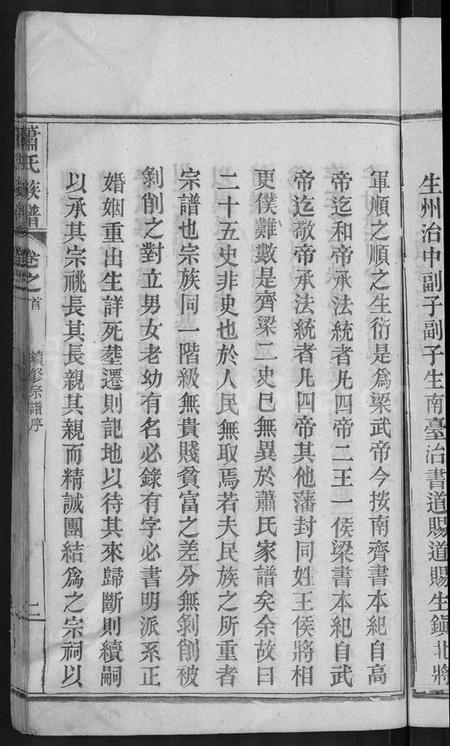 生州治中副子副子生南臺治書道賜道賜生鎮北將
軍順之順之生衍是爲梁武帝今按南齊書本紀自高
帝迄和帝承法統者凡四帝二王一侯梁書本紀自武
帝迄敬帝承法統者凡四帝其他藩封同姓王侯將相
更僕難數是齊梁二史已無異於蕭氏家譜矣余故曰
二十五史非史也於人民無取焉若夫民族之所重者
宗譜也宗族同一階級無貴賤貧富之差分無剝削被
剝削之對立男女老幼有名必錄有字必書明派系正
婚姻重出生詳死塟遷則記地以待其來歸斷則續嗣
以承其宗祧長其長親其親而精誠團結爲之宗祠以
蕭氏族譜
卷之首
續修宗譜序
二